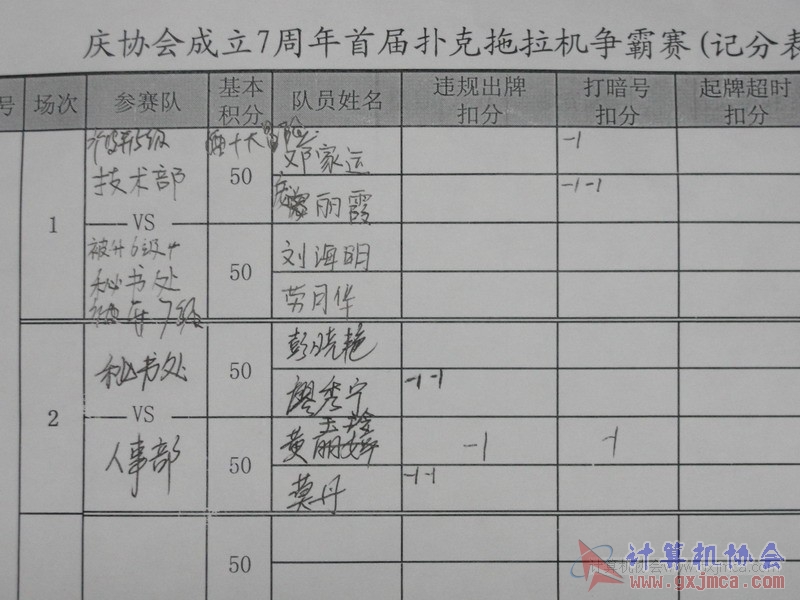 庆协会成立7周年首届扑克拖拉机争霸赛(记分表
号 场次 参赛队 基本积分 队员姓名 违规出牌扣分 打暗号扣分 起牌超时扣分
邓家运 -1
技术部 50
丽霞 -1 -1
1 VS
被升6级
刘海明
秘书处 50
劳月华
7级
彭晓艳
秘书处 50
廖秀宁 -1 -1
2 VS
黄 -1 -1
人事部 50
莫丹 -1 -1
50
计算机协会
www.gxjmca.com